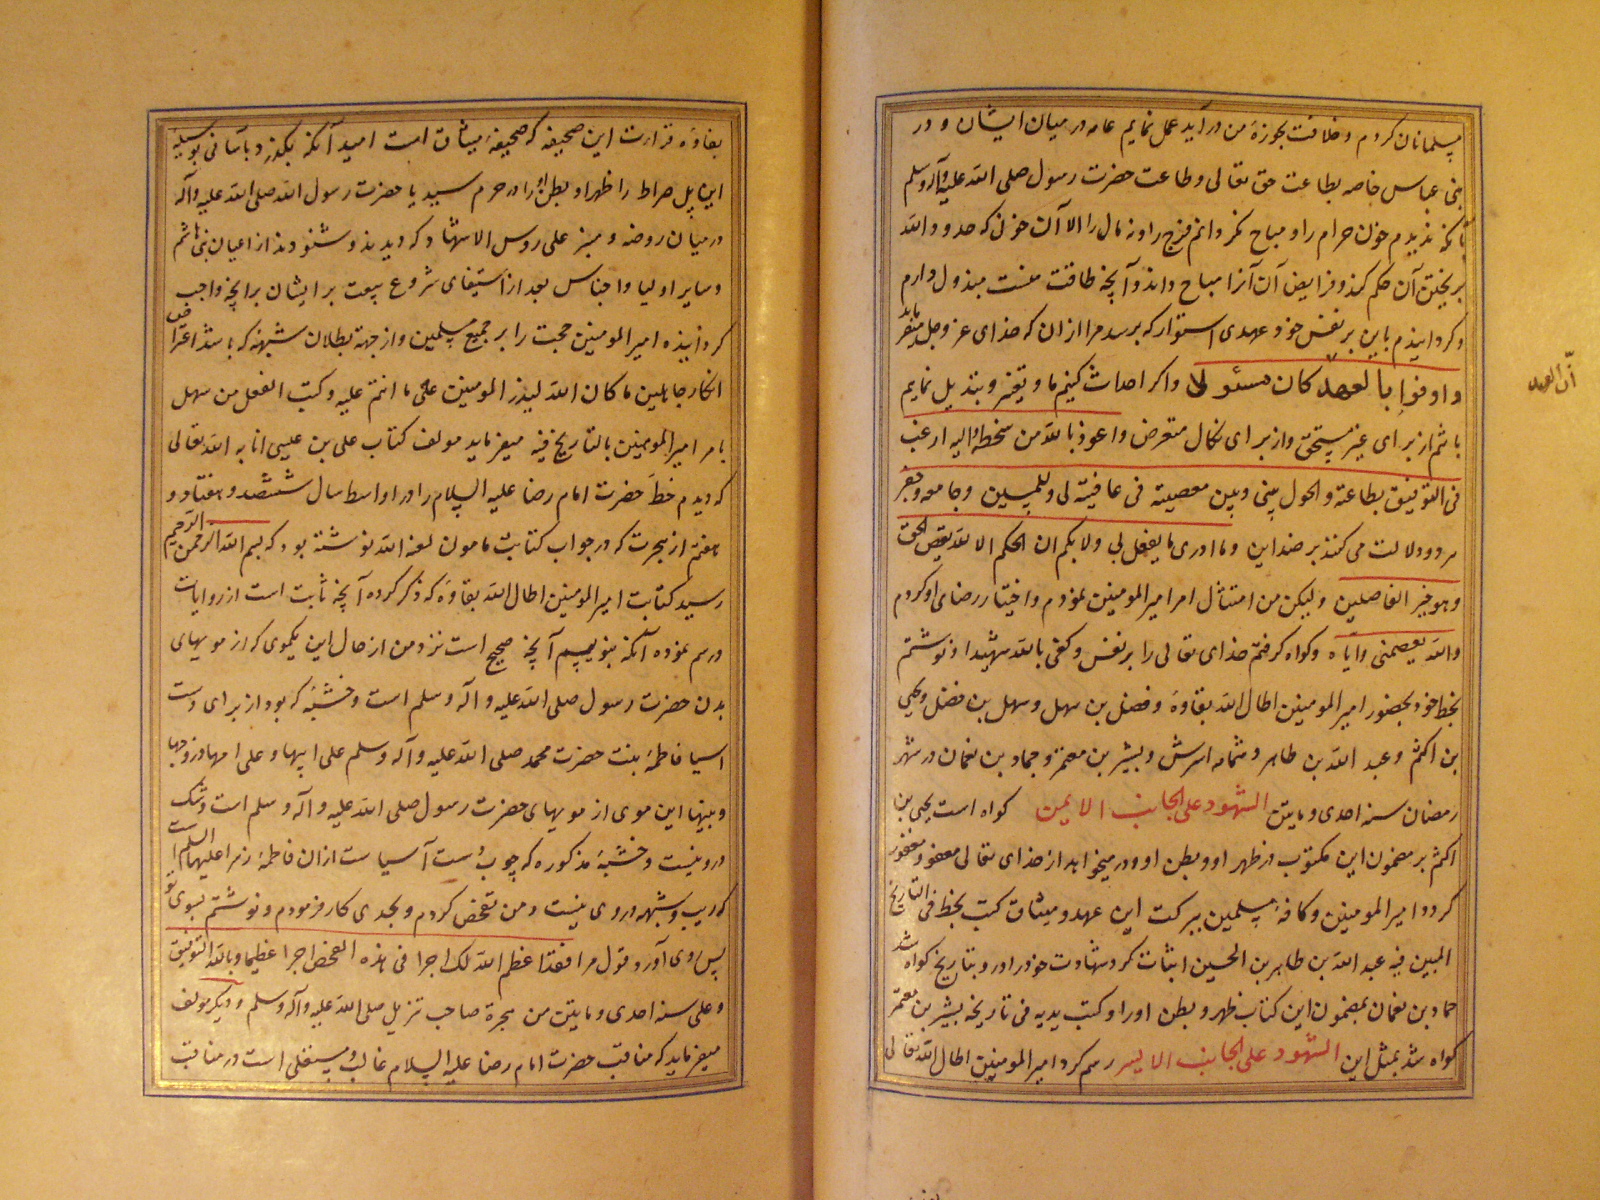 مسلمانان کردم و خلافت بحوزهٔ من در آید عمل نمایم عامه در میان ایشان و در
بنی عباس خاصه بطاعت حق تعالی و طاعت حضرت رسول صلی الله علیه و آله و سلم
تا آنکه نریزم خون حرام را و مباح نکردانم فرج را و نه مال را الا آن خونی که حدود الله
بریختن آن حکم کند و فرایض آن آنرا مباح داند و آنچه طاقت منست مبذول دارم
و کردانیدم باین بر نفس خود عهدی استوار که برسد مرا از ان که خدای عز و جل میفرماید
و اوفوا بالعهد کان مسئولا و اکر احداث کنیم ما و تغیر و تبدیل نمایم
انّ العهد
باشم از برای غیر مستحق و از برای نکال متعرض و اعوذ بالله من سخطه و الیه ارغب
فی التوفیق بطاعته و الحول بینی و بین معصیته فی عافیة لی و للمسلمین و جامعه و جفر
هر دو دلالت می کنند بر ضد این و ما ادری ما یفعل بی و لا بکم ان الحکم الا لله یقص الحق
و هو خیر الفاصلین و لیکن من امتثال امر امیر المومنین نمودم و اختیار رضای او کردم
و الله یعصمنی و ایاه و کواه کرفتم خدای تعالی را بر نفس و کفی بالله شهیدا و نوشتم
بخط خود بحضور امیر المومنین اطال الله بقاوه و فضل بن سهل و سهل بن فضل و یحیی
بن اکثم و عبد الله بن طاهر و ثمامه اشرش و بشیر بن معتمر و حماد بن نعمان در شهر
رمضان سنه احدی و مایتن الشهود علی الجانب الایمن کواه است یحیی بن
اکثم بر مضمون این مکتوب در ظهر او و بطن او و در میخواهد از خدای تعالی
کردد امیر المومنین و کافهٔ مسلمین ببرکت این عهد و میثاق کتب بخط فی التاریخ
المبین فیه عبد الله بن طاهر بن الحسین اثبات کرد شهادت خود را در و بتاریخ کواه شد
حماد بن نعمان بمضمون این کتاب ظهر و بطن او را و کتب بیدیه فی تاریخه بشیر بن معتمر
کواه شد بمثل این الشهود علی الجانب الایسر رسم کرد امیر المومنین اطال الله تعالی
بقاوه قرارت این صحیفه که صحیفهٔ میثاق است امید آنکه بکذرد باسانی بوسیلهٔ
این پل صراط را ظهر او بطن او را در حرم سید یا حضرت رسول الله صلی الله علیه و آله
در میان روضه و منبر علی روس الاشهاد که دیدند و شنودند از اعیان بنی هاشم
و سایر اولیا و اجناس بعد از استیفای شروع بیعت بر ایشان بر انچه واجب
کردانیده امیر المومنین حجت را بر جمیع مسلمین و از جهة بطلان شبهه که باشد اعتراض
انکار جاهلین ما کان الله لیذر المومنین علی ما انتم علیه و کتب الفعل من سهل
بامر امیر المومنین بالتاریخ فیه میفرماید مولف کتاب علی بن عیسی انابه الله تعالی
که دیدم خط حضرت امام رضا علیه السلام را در اواسط سال ششصد و هفتاد و
هفتم از هجرت که در جواب کتابت مامون لعنه الله نوشته بود که بسم الله الرحمن الرحیم
رسید کتابت امیر المومنین اطال الله بقاوه که ذکر کرده آنچه ثابت است از روایات
و رسم نموده آنکه بنویسم آنچه صحیح است نزد من از حال این یکموی که از مویهای
بدن حضرت رسول صلی الله علیه و آله و سلم است و خشبهٔ که بود از برای دست
اسیا فاطمهٔ بنت حضرت محمد صلی الله علیه و آله و سلم علی ابیها و علی امها و زوجها
و بنیها این موی از مویهای حضرت رسول صلی الله علیه و آله و سلم است و شک
در و نیست و خشبهٔ مذکوره که چوب دست آسیاست از ان فاطمهٔ زهرا علیها السلم است
که ریب و شبهه در وی نیست و من تفحص کردم و بجدی کار فرمودم و نوشتم بسوی تو
پس روی آور و قول مرا فقد اعظم الله لک اجرا فی هذه الفحص اجرا عظیما و بالله التوفیق
و علی سنه احدی و مایتن من هجرة صاحب تنزیل صلی الله علیه و آله و سلم و دیکر مولف
میفرماید که مناقب حضرت امام رضا علیه السلام غالب و مستعلی است در مناقب